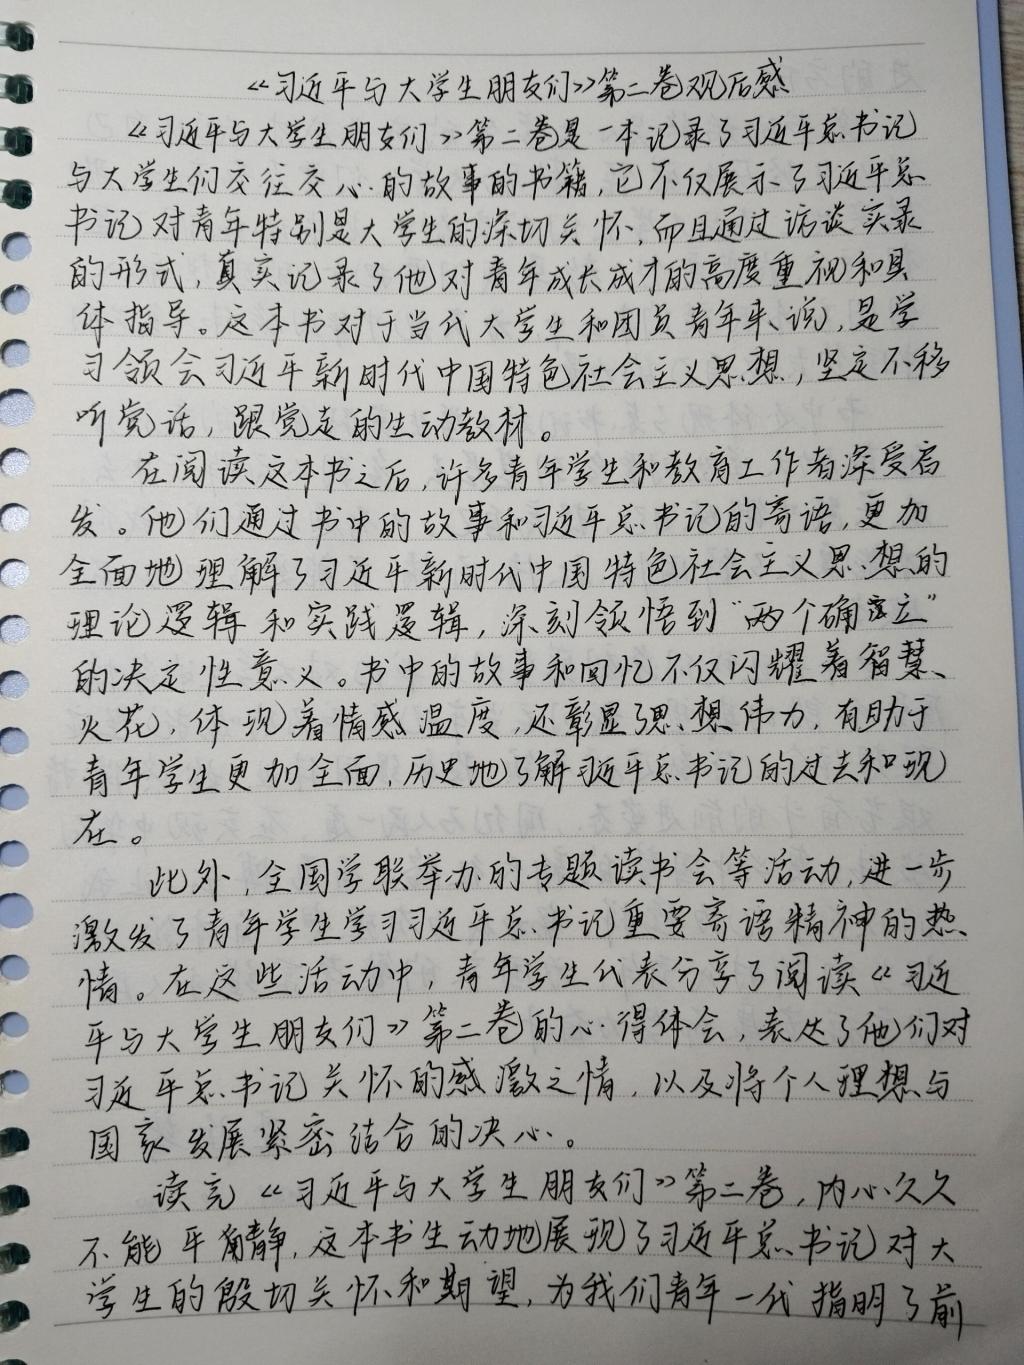 《习近平与大学生朋友们》第二卷观后感
《习近平与大学生朋友们》第二卷是一本记录了习近平总书记
与大学生们交往交心的故事的书籍,它不仅展示了习近平总
书记对青年特别是大学生的深切关怀,而且通过访谈实录
的形式,真实记录了他对青年成长成才的高度重视和具
体指导。这本书对于当代大学生和团员青年来说,是学
习领会习近平新时代中国特色社会主义思想,坚定不移
听党话,跟党走的生动教材。
在阅读这本书之后,许多青年学生和教育工作者深受启
发。他们通过书中的故事和习近平总书记的寄语,更加
全面地理解了习近平新时代中国特色社会主义思想的
理论逻辑和实践逻辑,深刻领悟到“两个确立”
的决定性意义。书中的故事和回忆不仅闪耀着智慧、
火花,体现着情感温度,还彰显了思想伟力,有助于
青年学生更加全面,历史地了解习近平总书记的过去和现
在。
此外,全国学联举办的专题读书会等活动,进一步
激发了青年学生学习习近平总书记重要寄语精神的热
情。在这些活动中,青年学生代表分享了阅读《习近
平与大学生朋友们》第二卷的心得体会,表达了他们对
习近平总书记关怀的感激之情,以及将个人理想与
国家发展紧密结合的决心。
读完《习近平与大学生朋友们》第二卷,内心久久
不能平静,这本书生动地展现了习近平总书记对大
学生的殷切关怀和期望,为我们青年一代指明了前